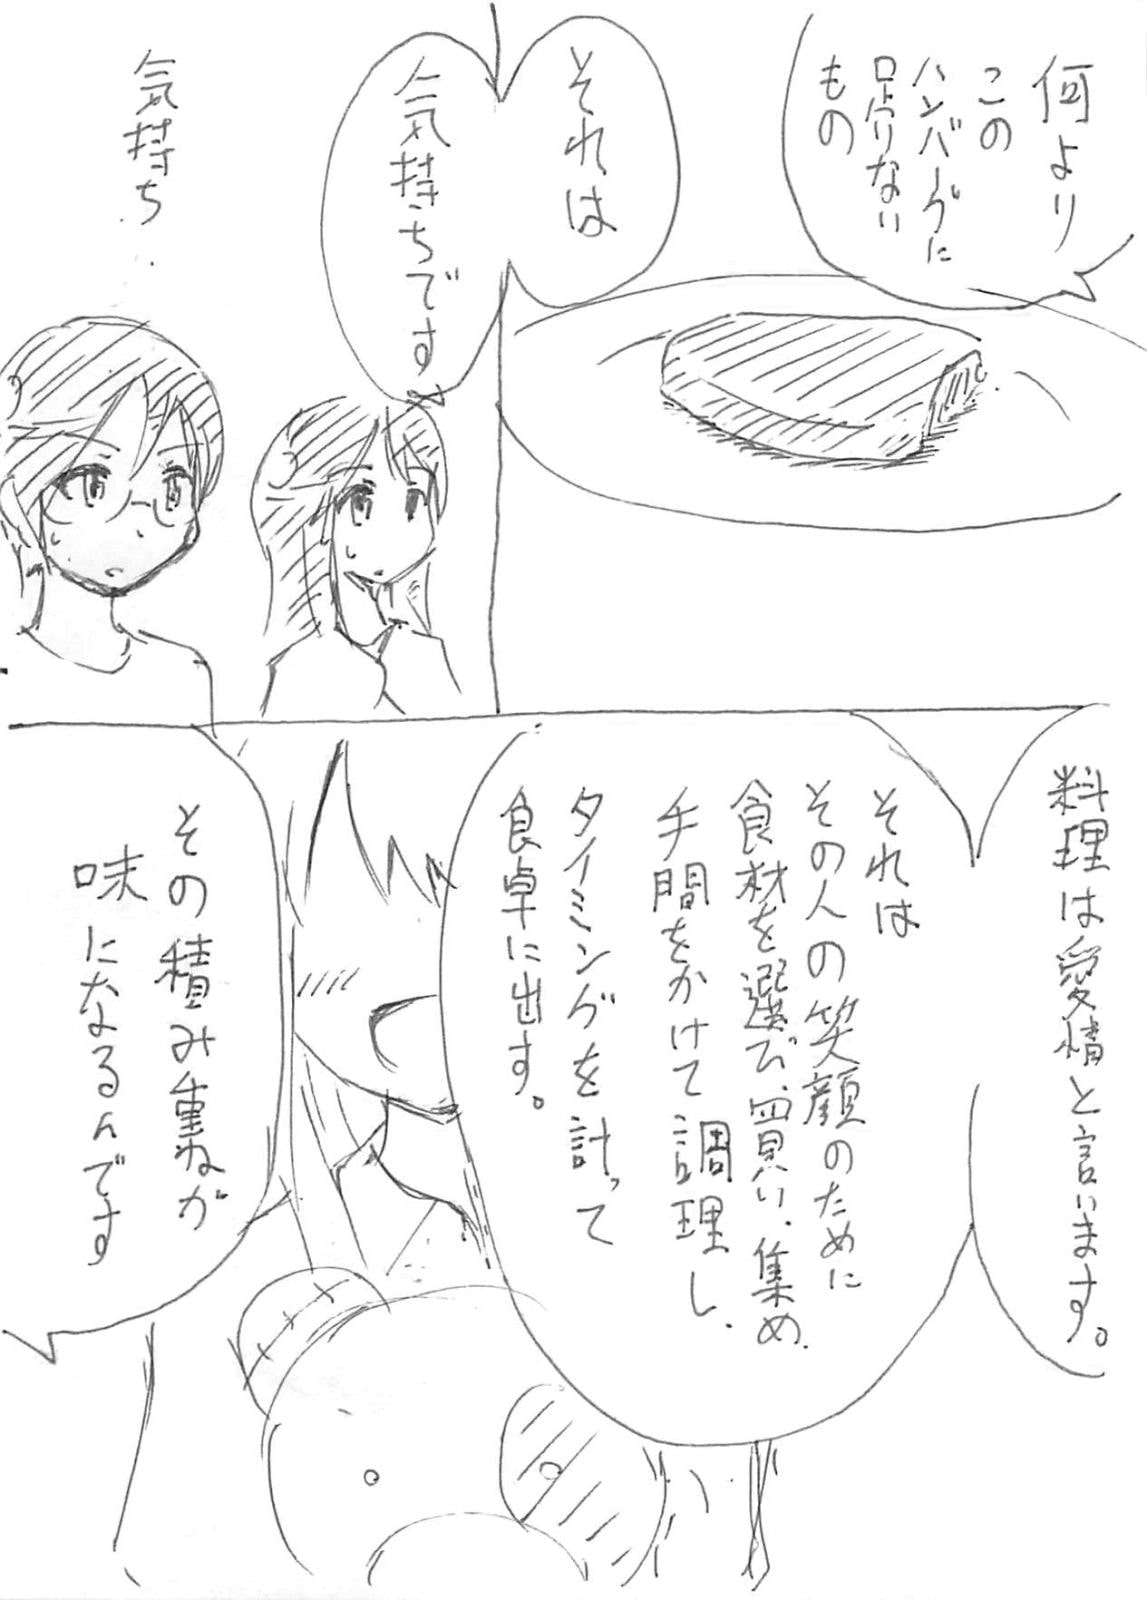 何より
この
ハンバーグに
足りない
もの
それは
気持ちです
気持ち…
料理は愛情と言います。
それは
その人の笑顔のために
食材を選び、買い、集め、
手間をかけて調理し、
タイミングを計って
食卓に出す。
その積み重ねが
味になるんです